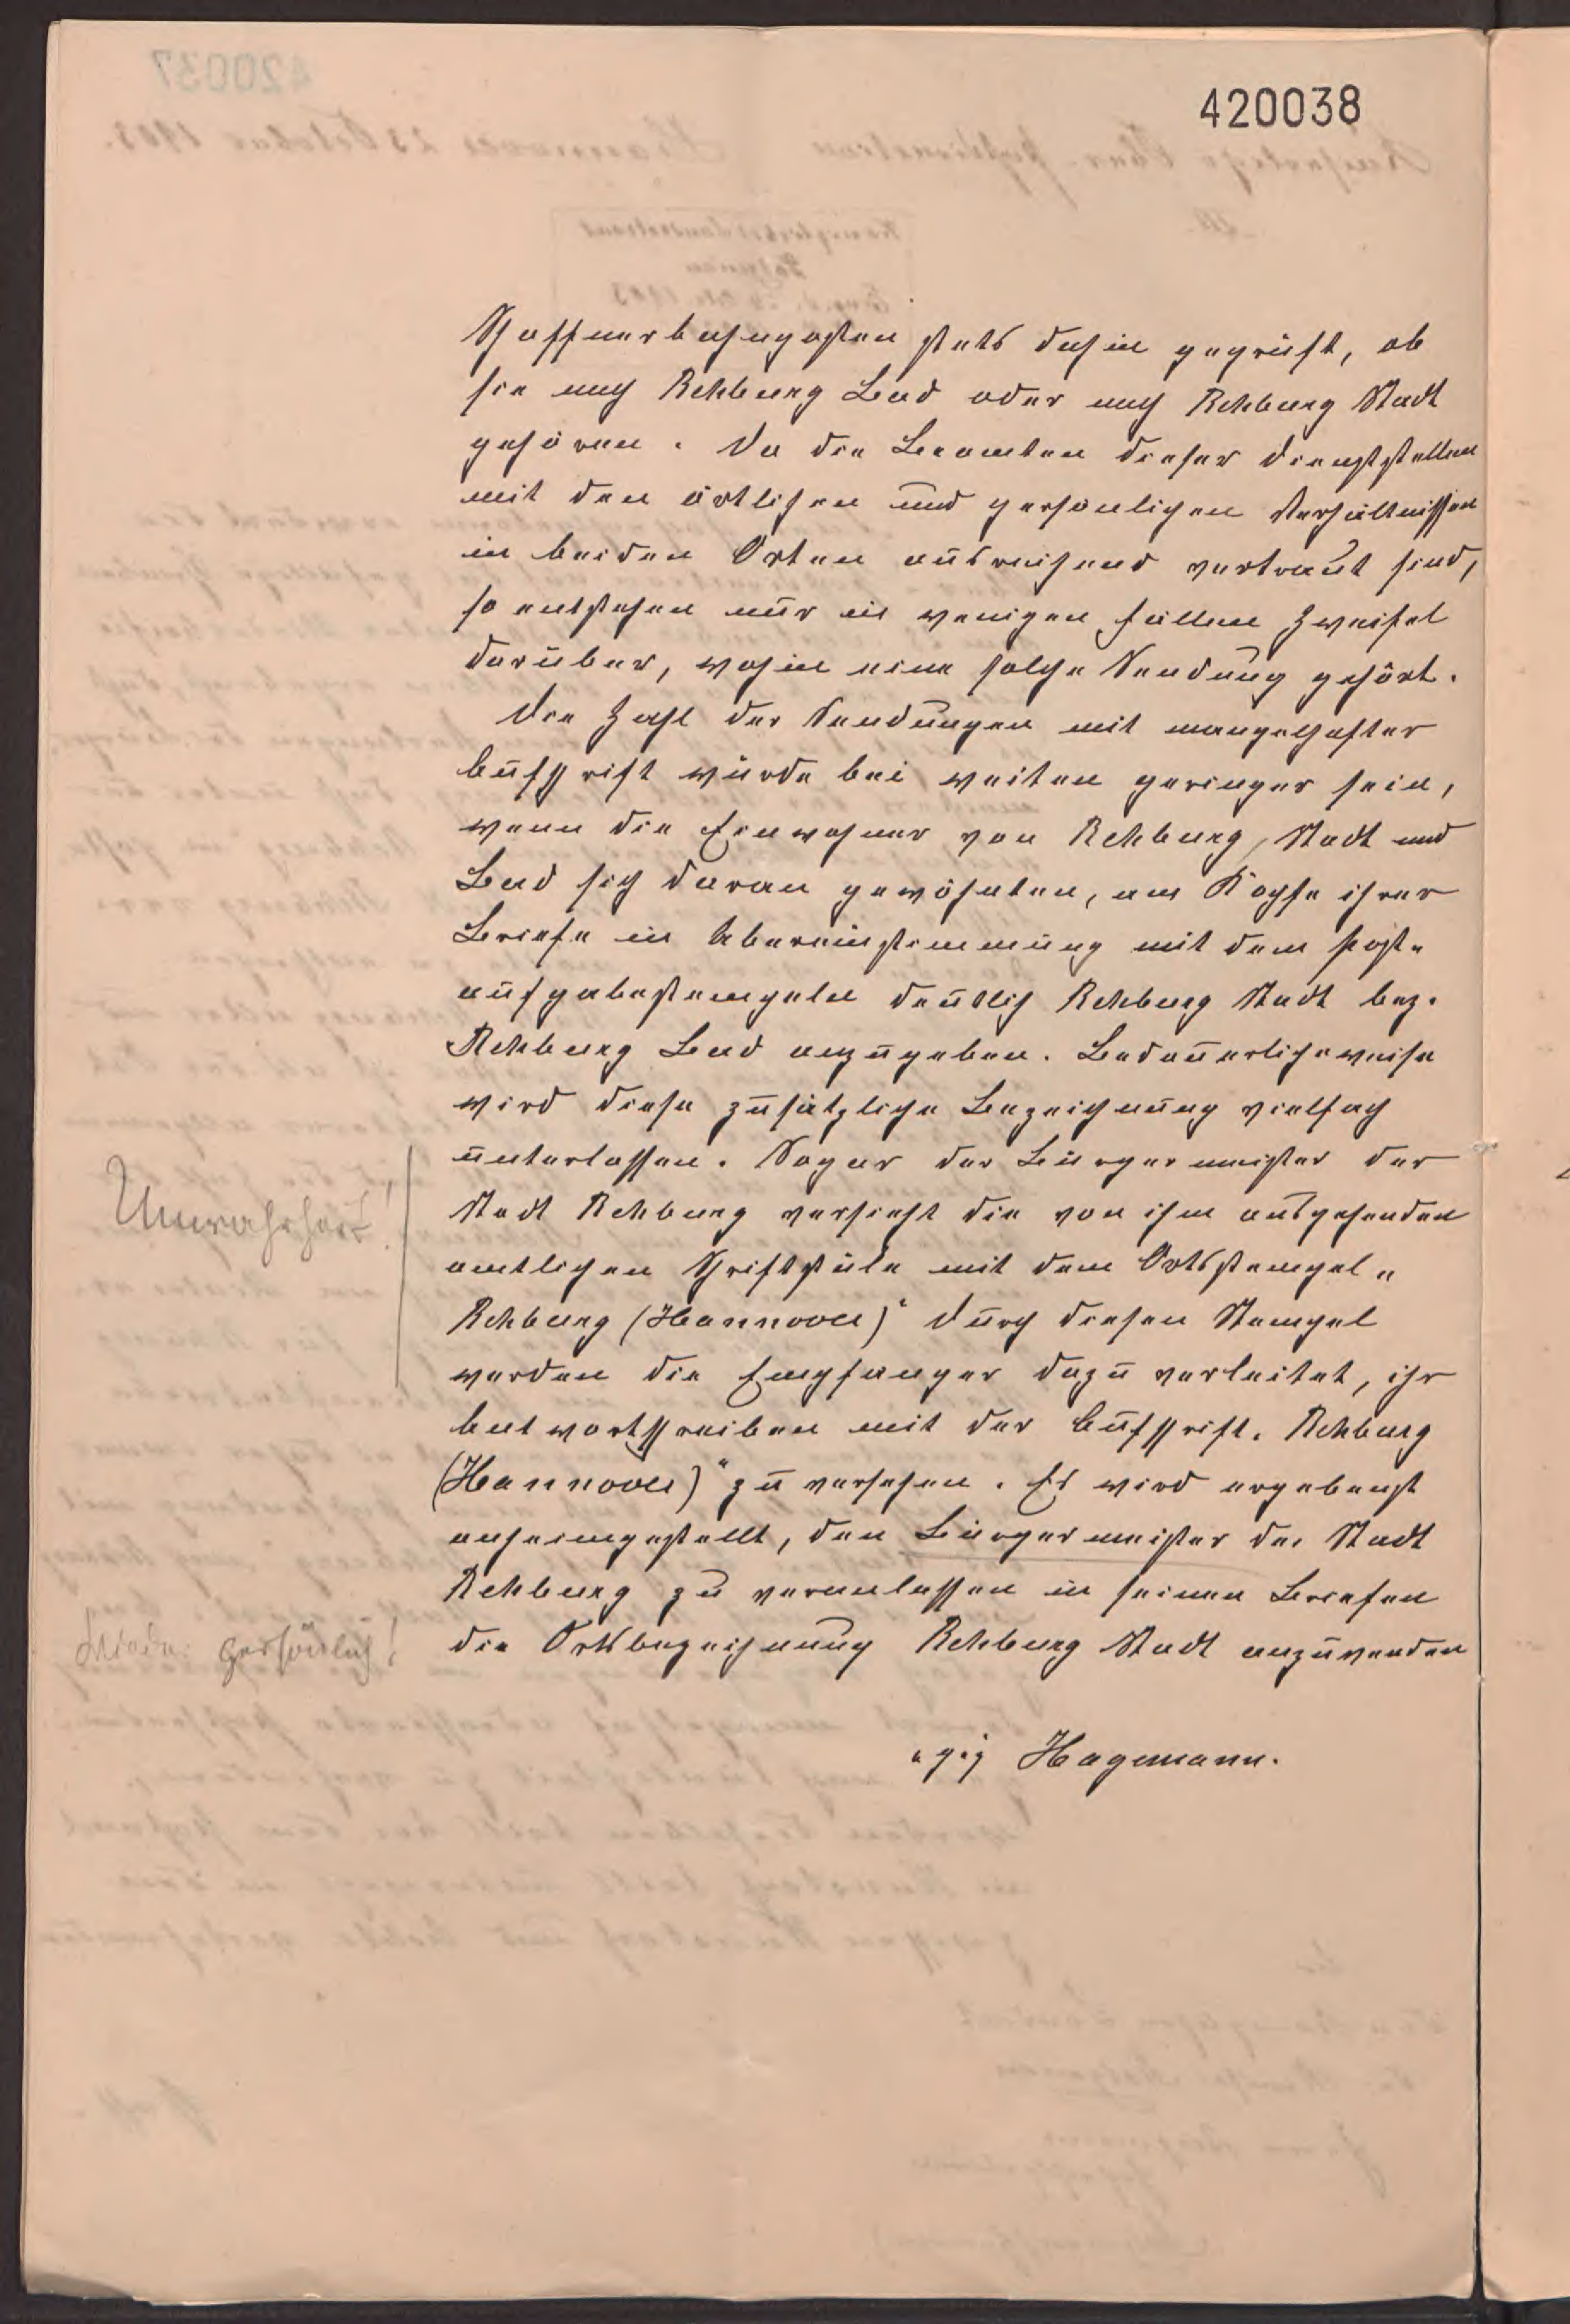 420038
Schaffnerbahnposten stets dahin geprüft, ob
sie nach Rehburg Bad oder nach Rehburg Stadt
gehören. Da die Beamten dieser Dienststellen
mit den örtlichen und persönlichen Verhältnissen
in beiden Orten ausreichend vertraut sind,
so entstehen nur in wenigen Fällen Zweifel
darüber, wohin eine solche Sendung gehört.
Die Zahl der Sendungen mit mangelhafter
Aufschrift würde bei weiten geringer sein,
wenn die Einwohner von Rehburg, Stadt und
Bad sich daran gewöhnten, am Kopfe ihrer
Briefe in Übereinstimmung mit dem Post-
aufgabestempeln deutlich Rehburg Stadt bez.
Rehburg Bad anzugeben. Bedauerlicheweise
wird diese zusätzliche Bezeichnung vielfach
unterlassen. Sogar der Bürgermeister der
Unwahrheit!
Stadt Rehburg versieht die von ihm ausgehenden
amtlichen Schriftstüke mit dem Ortsstempel „
Rehburg (Hannover)“ Durch diesen Stempel
werden die Empfänger dazu verleitet, ihr
Antwortschreiben mit der Aufschrift „Rehburg
(Hannover)“ zu versehen. Es wird ergebenst
anheimgestellt, den Bürgermeister der Stadt
Rehburg zu veranlassen in seinen Briefen
die Ortsbezeichnung Rehburg Stadt anzuwenden
persönlich!
gez Hagemann.